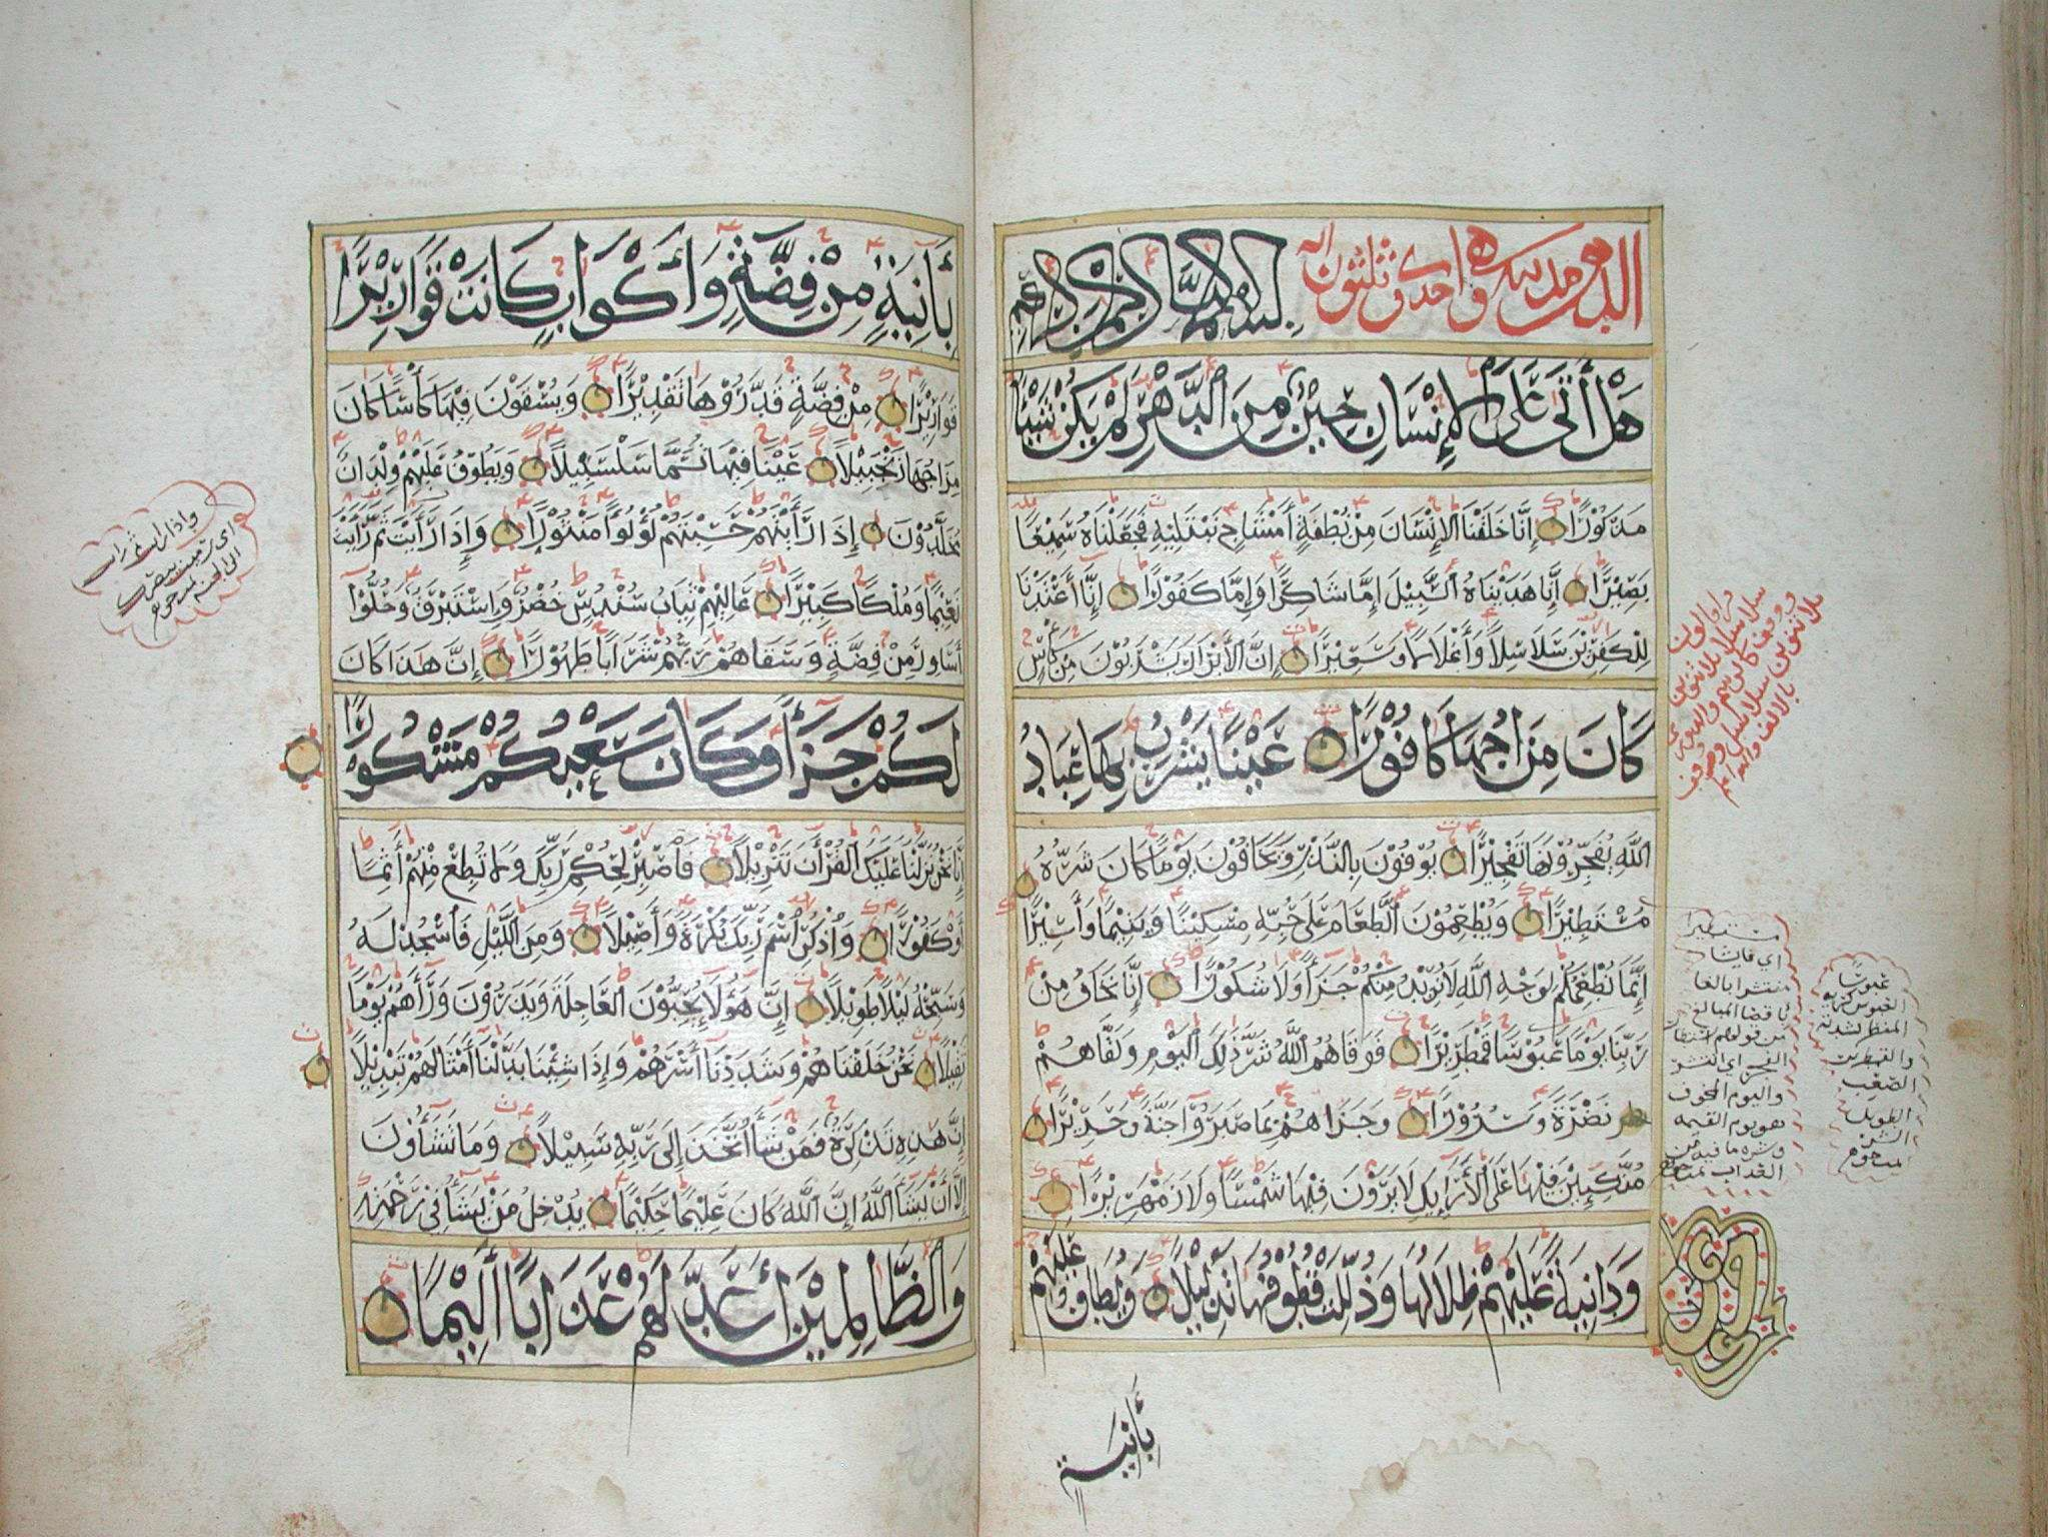 الدهر مدنية وهي احدى وثلثون اية بسم الله الرحمن الرحيم
هَلْ أَتَى عَلَى الْإِنْسَانِ حِيْنٌ مِنَ الدَّهْرِ لَمْ يَكُنْ شَيْئًا
مَذْكُوْرًا إِنَّا خَلَقْنَا الْإِنْسَانَ مِنْ نُطْفَةٍ أَمْشَاجٍ نَبْتَلِيْهِ فَجَعَلْنَاهُ سَمِيْعًا
بَصِيْرًا إِنَّا هَدَيْنَاهُ السَّبِيْلَ إِمَّا شَاكِرًا وَإِمَّا كَفُوْرًا إِنَّا أَعْتَدْنَا
لِلْكَفِرِيْنَ سَلَاسِلًا وَأَغْلَالًا وَسَعِيْرًا إِنَّ الْأَبْرَارَ يَشْرَبُوْنَ مِنْ كَأْسٍ
كَانَ مِزَاجُهَا كَافُوْرًا عَيْنًا يَشْرَبُ بِهَا عِبَادُ
اللَّهِ يُفَجِّرُوْنَهَا تَفْجِيْرًا يُوْفُوْنَ بِالنَّذْرِ وَيَخَافُوْنَ يَوْمًا كَانَ شَرُّهُ
مُسْتَطِيْرًا وَيُطْعِمُوْنَ الطَّعَامَ عَلَى حُبِّهِ مِسْكِيْنًا وَيَتِيْمًا وَأَسِيْرًا
إِنَّمَا نُطْعِمُكُمْ لِوَجْهِ اللَّهِ لَا نُرِيْدُ مِنْكُمْ جَزَاءً وَلَا شُكُوْرًا إِنَّا نَخَافُ مِنْ
رَبِّنَا يَوْمًا عَبُوْسًا قَمْطَرِيْرًا فَوَقَاهُمُ اللَّهُ شَرَّ ذَلِكَ الْيَوْمِ وَلَقَّاهُمْ
نَضْرَةً وَسُرُوْرًا وَجَزَاهُمْ بِمَا صَبَرُوْا جَنَّةً وَحَرِيْرًا
مُتَّكِئِيْنَ فِيْهَا عَلَى الْأَرَائِكِ لَا يَرَوْنَ فِيْهَا شَمْسًا وَلَا زَمْهَرِيْرًا
وَدَانِيَةً عَلَيْهِمْ ظِلَالُهَا وَذُلِّلَتْ قُطُوْفُهَا تَذْلِيْلًا وَيُطَافُ عَلَيْهِمْ
بِأَنِيَةٍ
مستطيرا
اي فاشيا
منتشرا بالغا
اقصا المبالغ
من قولهم استطار
الفجر اي انتشر
واليوم المخوف
هو يوم القيمه
وشره ما فيه من
العذاب
عبوسًا
العبوس كريه
المنظر لشدته
والقمطرير
الصعب
الطويل
الشر
بِأَنِيَةٍ مِنْ فِضَّةٍ وَأَكْوَابٍ كَانَتْ قَوَارِيْرًا
قَوَارِيْرًا مِنْ فِضَّةٍ قَدَّرُوْهَا تَقْدِيْرًا وَيُسْقَوْنَ فِيْهَا كَأْسًا كَانَ
مِزَاجُهَا زَنْجَبِيْلًا عَيْنًا فِيْهَا تُسَمَّى سَلْسَبِيْلًا وَيَطُوْفُ عَلَيْهِمْ وِلْدَانٌ
مُخَلَّدُوْنَ إِذَا رَأَيْتَهُمْ حَسِبْتَهُمْ لُؤْلُؤًا مَنْثُوْرًا وَإِذَا رَأَيْتَ ثَمَّ رَأَيْتَ
نَعِيْمًا وَمُلْكًا كَبِيْرًا عَالِيَهُمْ ثِيَابُ سُنْدُسٍ خُضْرٌ وَإِسْتَبْرَقٌ وَحُلُّوْا
أَسَاوِرَ مِنْ فِضَّةٍ وَسَقَاهُمْ رَبُّهُمْ شَرَابًا طَهُوْرًا إِنَّ هَذَا كَانَ
لَكُمْ جَزَاءً وَكَانَ سَعْيُكُمْ مَشْكُوْرًا
إِنَّا نَحْنُ نَزَّلْنَا عَلَيْكَ الْقُرْأَنَ تَنْزِيْلًا فَاصْبِرْ لِحُكْمِ رَبِّكَ وَلَا تُطِعْ مِنْهُمْ أَثِمًا
أَوْ كَفُوْرًا وَاذْكُرِ اسْمَ رَبِّكَ بُكْرَةً وَأَصِيْلًا وَمِنَ اللَّيْلِ فَاسْجُدْ لَهُ
وَسَبِّحْهُ لَيْلًا طَوِيْلًا إِنَّ هَؤُلَاءِ يُحِبُّوْنَ الْعَاجِلَةَ وَيَذَرُوْنَ وَرَاءَهُمْ يَوْمًا
ثَقِيْلًا نَحْنُ خَلَقْنَاهُمْ وَشَدَدْنَا أَسْرَهُمْ وَإِذَا شِئْنَا بَدَّلْنَا أَمْثَالَهُمْ تَبْدِيْلًا
إِنَّ هَذِهِ تَذْكِرَةٌ فَمَنْ شَاءَ اتَّخَذَ إِلَى رَبِّهِ سَبِيْلًا وَمَا تَشَاؤُنَ
إِلَّا أَنْ يَشَاءَ اللَّهُ إِنَّ اللَّهَ كَانَ عَلِيْمًا حَكِيْمًا يُدْخِلُ مَنْ يَشَاءُ فِيْ رَحْمَتِهِ
وَالظَّالِمِيْنَ أَعَدَّ لَهُمْ عَذَابًا أَلِيْمًا